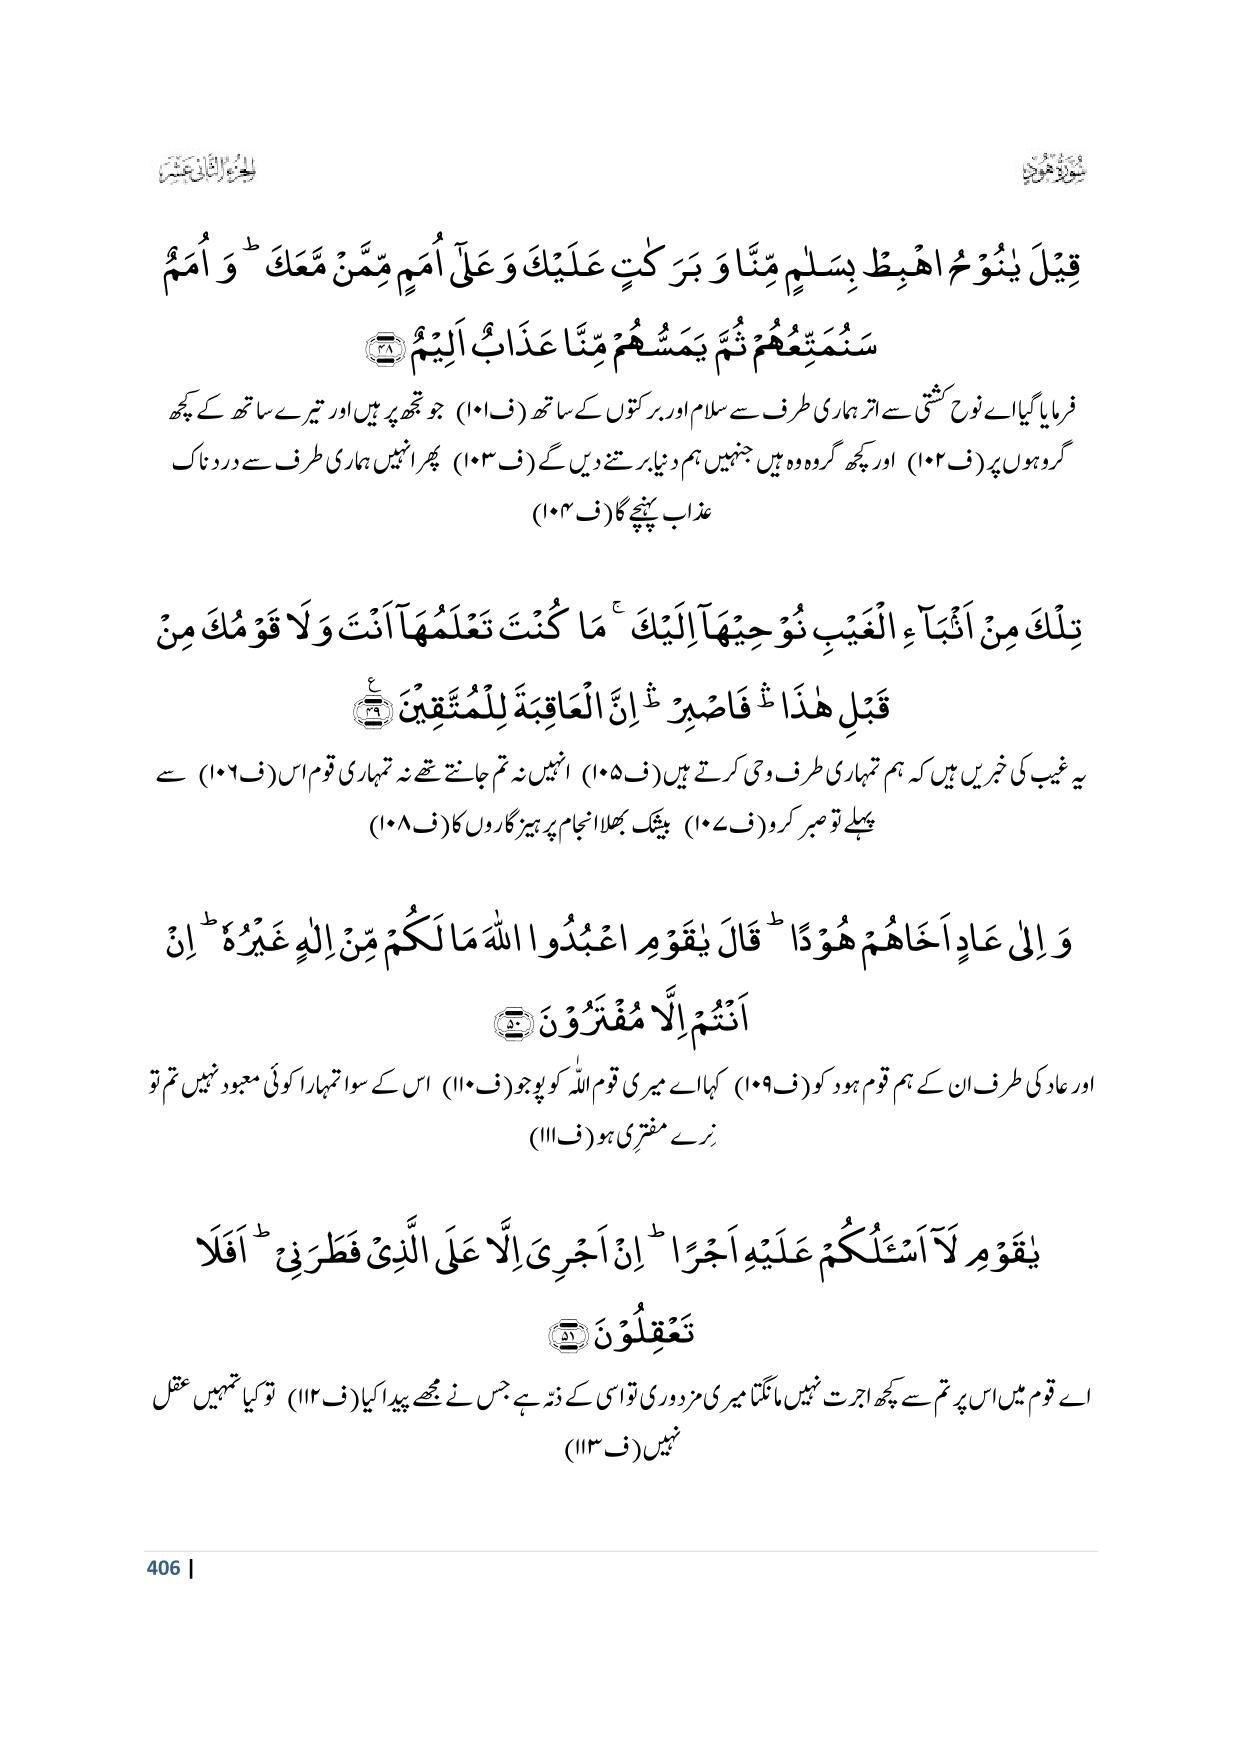 سُوْرَةُ هُوْدٍ
الجزء الثانی عشر
قِیْلَ یٰنُوْحُ اهْبِطْ بِسَلٰمٍ مِّنَّا وَ بَرَكٰتٍ عَلَیْكَ وَ عَلٰۤى اُمَمٍ مِّمَّنْ مَّعَكَ ؕ وَ اُمَمٌ
سَنُمَتِّعُهُمْ ثُمَّ یَمَسُّهُمْ مِّنَّا عَذَابٌ اَلِیْمٌ ﴿۴۸﴾
فرمایا گیا اے نوح کشتی سے اتر ہماری طرف سے سلام اور برکتوں کے ساتھ (ف۱۰۱) جو تجھ پر ہیں اور تیرے ساتھ کے کچھ
گروہوں پر (ف۱۰۲) اور کچھ گروہ وہ ہیں جنہیں ہم دنیا برتنے دیں گے (ف۱۰۳) پھر انہیں ہماری طرف سے دردناک
عذاب پہنچے گا (ف۱۰۴)
تِلْكَ مِنْ اَنْۢبَآءِ الْغَیْبِ نُوْحِیْهَاۤ اِلَیْكَ ۚ مَا كُنْتَ تَعْلَمُهَاۤ اَنْتَ وَ لَا قَوْمُكَ مِنْ
قَبْلِ هٰذَا ۛؕ فَاصْبِرْ ۛؕ اِنَّ الْعَاقِبَةَ لِلْمُتَّقِیْنَ ﴿۴۹﴾ ع
یہ غیب کی خبریں ہیں کہ ہم تمہاری طرف وحی کرتے ہیں (ف۱۰۵) انہیں نہ تم جانتے تھے نہ تمہاری قوم اس (ف۱۰۶) سے
پہلے تو صبر کرو (ف۱۰۷) بیشک بھلا انجام پرہیزگاروں کا (ف۱۰۸)
وَ اِلٰى عَادٍ اَخَاهُمْ هُوْدًا ؕ قَالَ یٰقَوْمِ اعْبُدُوا اللّٰهَ مَا لَكُمْ مِّنْ اِلٰهٍ غَیْرُهٗ ؕ اِنْ
اَنْتُمْ اِلَّا مُفْتَرُوْنَ ﴿۵۰﴾
اور عاد کی طرف ان کے ہم قوم ہود کو (ف۱۰۹) کہا اے میری قوم اللّٰہ کو پوجو (ف۱۱۰) اس کے سوا تمہارا کوئی معبود نہیں تم تو
نِرے مفترِی ہو (ف۱۱۱)
یٰقَوْمِ لَاۤ اَسْـَٔلُكُمْ عَلَیْهِ اَجْرًا ؕ اِنْ اَجْرِیَ اِلَّا عَلَى الَّذِیْ فَطَرَنِیْ ؕ اَفَلَا
تَعْقِلُوْنَ ﴿۵۱﴾
اے قوم میں اس پر تم سے کچھ اجرت نہیں مانگتا میری مزدوری تو اسی کے ذمّہ ہے جس نے مجھے پیدا کیا (ف۱۱۲) تو کیا تمہیں عقل
نہیں (ف۱۱۳)
406 |